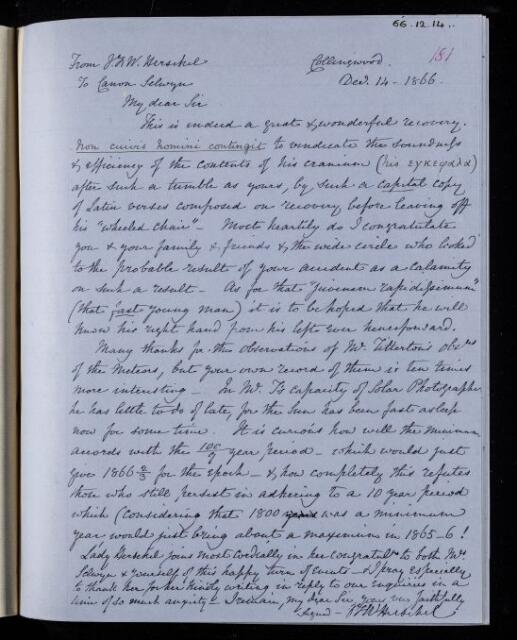 66.12.14.
181
From J F W Herschel Collingwood.
To Canon Selwyn Decr. 14 - 1866.
My dear Sir
This is indeed a great & wonderful recovery.
Non cuivis homini contingit to vindicate the soundness
& efficiency of the contents of his cranium (his εγκεφαλα)
after such a tumble as yours, by such a capital copy
of Latin verses composed on recovery before leaving off
his "wheeled chair" - Most heartily do I congratulate
you & your family & friends & the wide circle who looked
to the probable result of your accident as a calamity
on such a result - As for that "juvenem rapidissimum"
(that fast young man) it is to be hoped that he will
know his right hand from his left ever henceforward.
Many thanks for the observations of Mr. Titterton's obsns
of the Meteors, but your own record of them is ten times
more interesting - In Mr. T's capacity of Solar Photographer
he has little to do of late, for the Sun has been fast asleep
now for some time. It is curious how well the minimum
accords with the 100/9 year period - which would just
give 1866 2/3 for the epoch - & how completely this refutes
those who still persist in adhering to a 10 year period
which (considering that 1800 was a minimum
year would just bring about a maximum in 1865-6!
Lady Herschel joins most cordially in her congratulns to both Mrs.
Selwyn & yourself on this happy turn of events - & I pray especially
to thank her for her kindly writing in reply to our enquiries in a
time of so much anxiety - I remain, my dear Sir, yours very faithfully
Signd - J F W Herschel